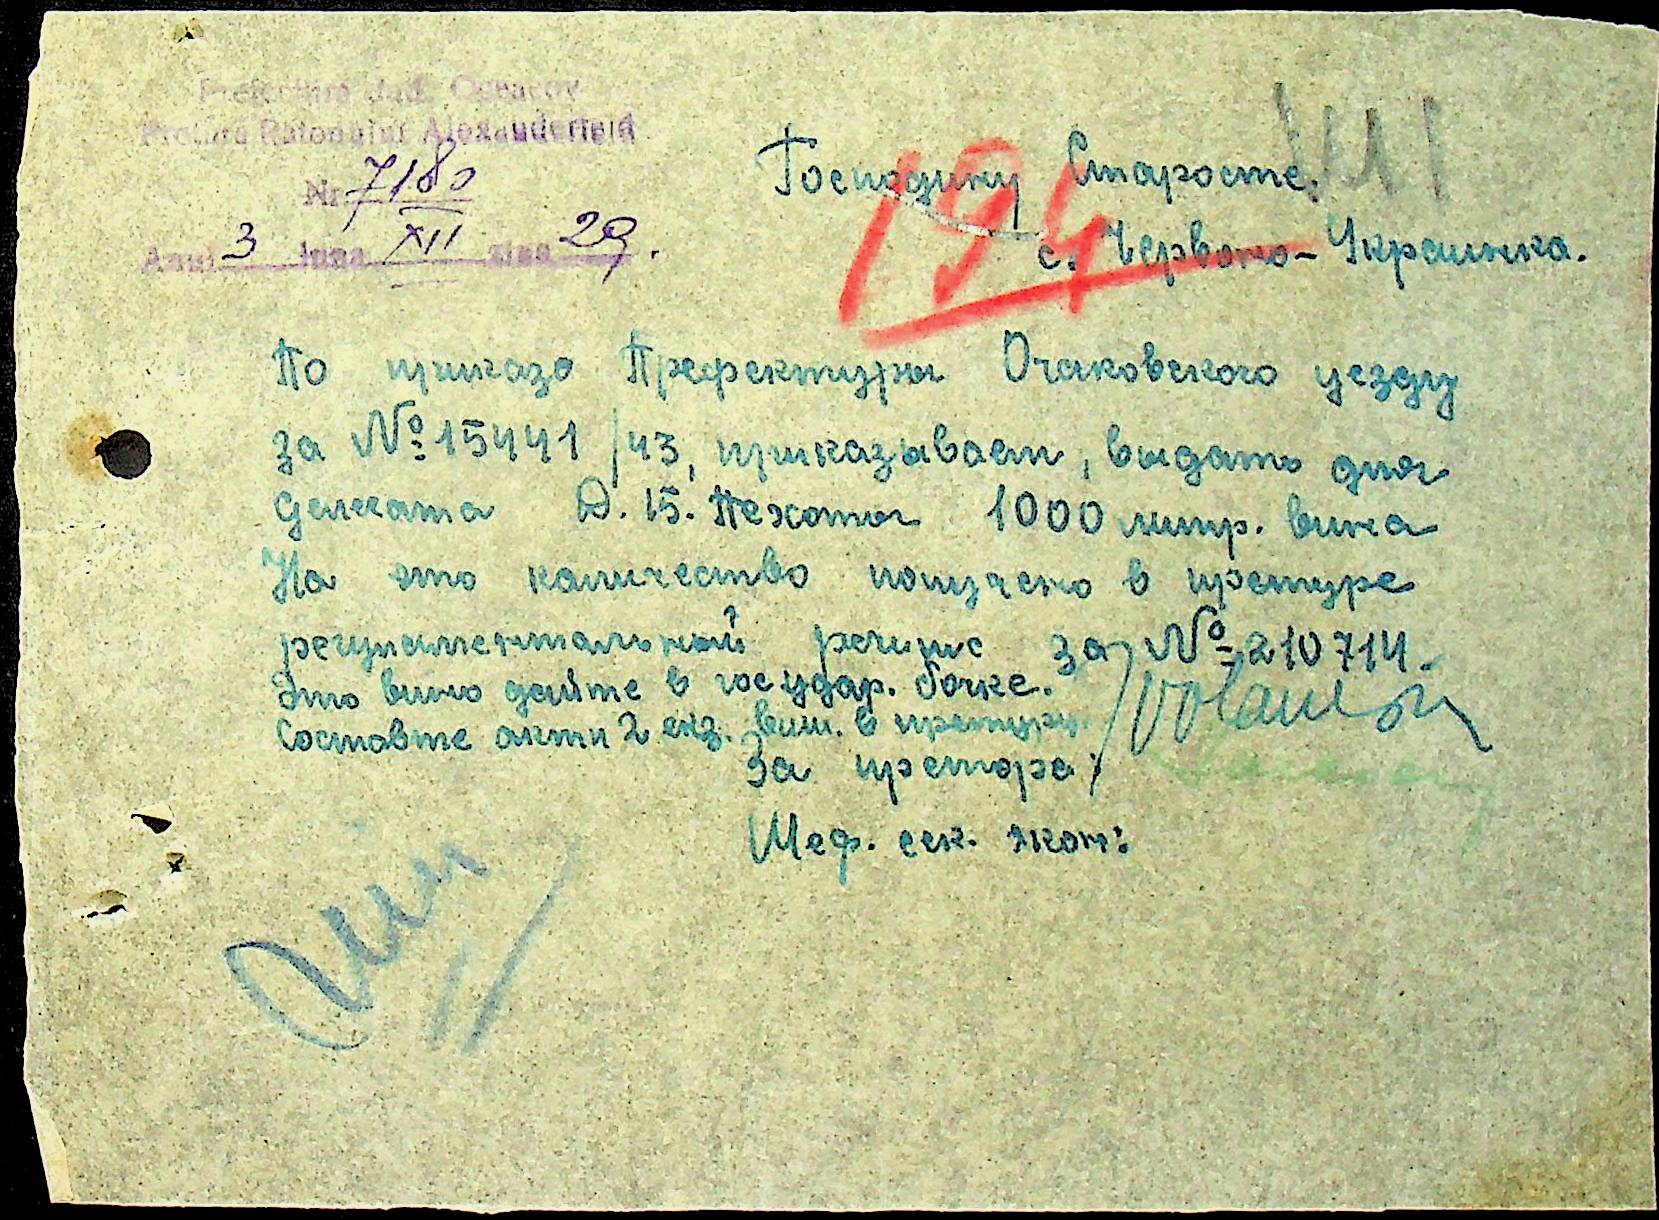 Prefectura Jud. Oceacov
Pretura Raionului Alexanderfeld
Nr 7180
Anul 3 luna XII ziua 29.
194
Господину Старосте.
с. Червоно-Украинка.
По приказо Префектуры Очаковского уезду
за № 15441/43, приказывает, выдать для
делегата D. 15. Пехоты 1000 литр. вина
На это количество получено в претуре
регулиментальный речипис за № 210714.
Это вино дайте в государ. бочке.
Составте акти 2 екз. виш. в претуру.
За претора:
Шеф. сек. экон: